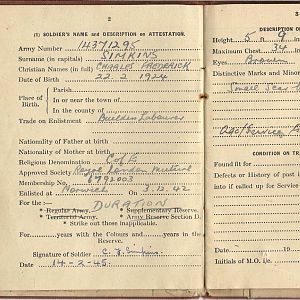 2
(1) SOLDIER'S NAME and DESCRIPTION on ATTESTATION.
Army Number 14371295
Surname (in capitals) SIMKINS
Christian Names (in full) CHARLES FREDERICK
Date of Birth 22.2.1924
Place of Birth
Parish
In or near the town of
In the county of
Trade on Enlistment Builders Labourer
Nationality of Father at birth
Nationality of Mother at birth
Religious Denomination C of E
Approved Society Royal London Mutual
Membership No.
Enlisted at Norwich On 3.12.42
For the :— DURATION
* Regular Army. * Supplementary Reserve.
* Territorial Army. * Army Reserve Section D.
* Strike out those inapplicable.
For years with the Colours and years in the Reserve.
Signature of Soldier C. F. Simkins
Date 14-2-45
DESCRIPTION ON
Height 5 ft. 9
Maximum Chest 34
Eyes Brown
Distinctive Marks and Minor
Small Scar
CONDITION ON TRA
Found fit for
Defects or History of past
into if called up for Service
Date 19
Initials of M.O. i/c.